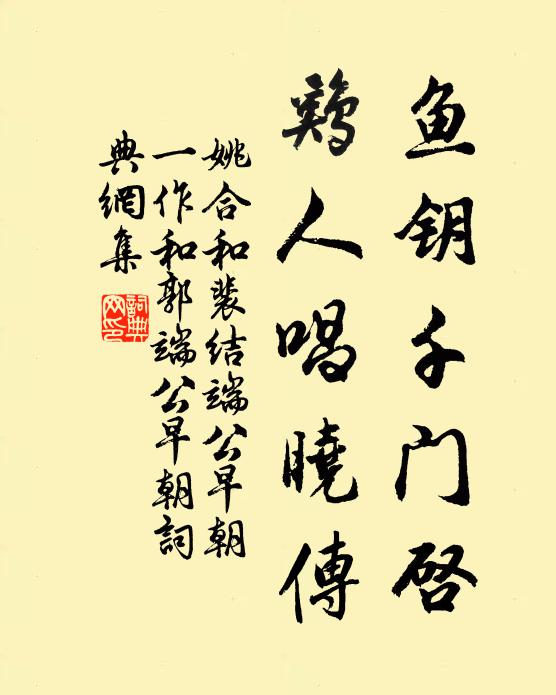 鱼钥千门启
鷄人唱曉傳
姚合和裴结端公早朝
一作和郭端公早朝詞
典網集
詞典
网印